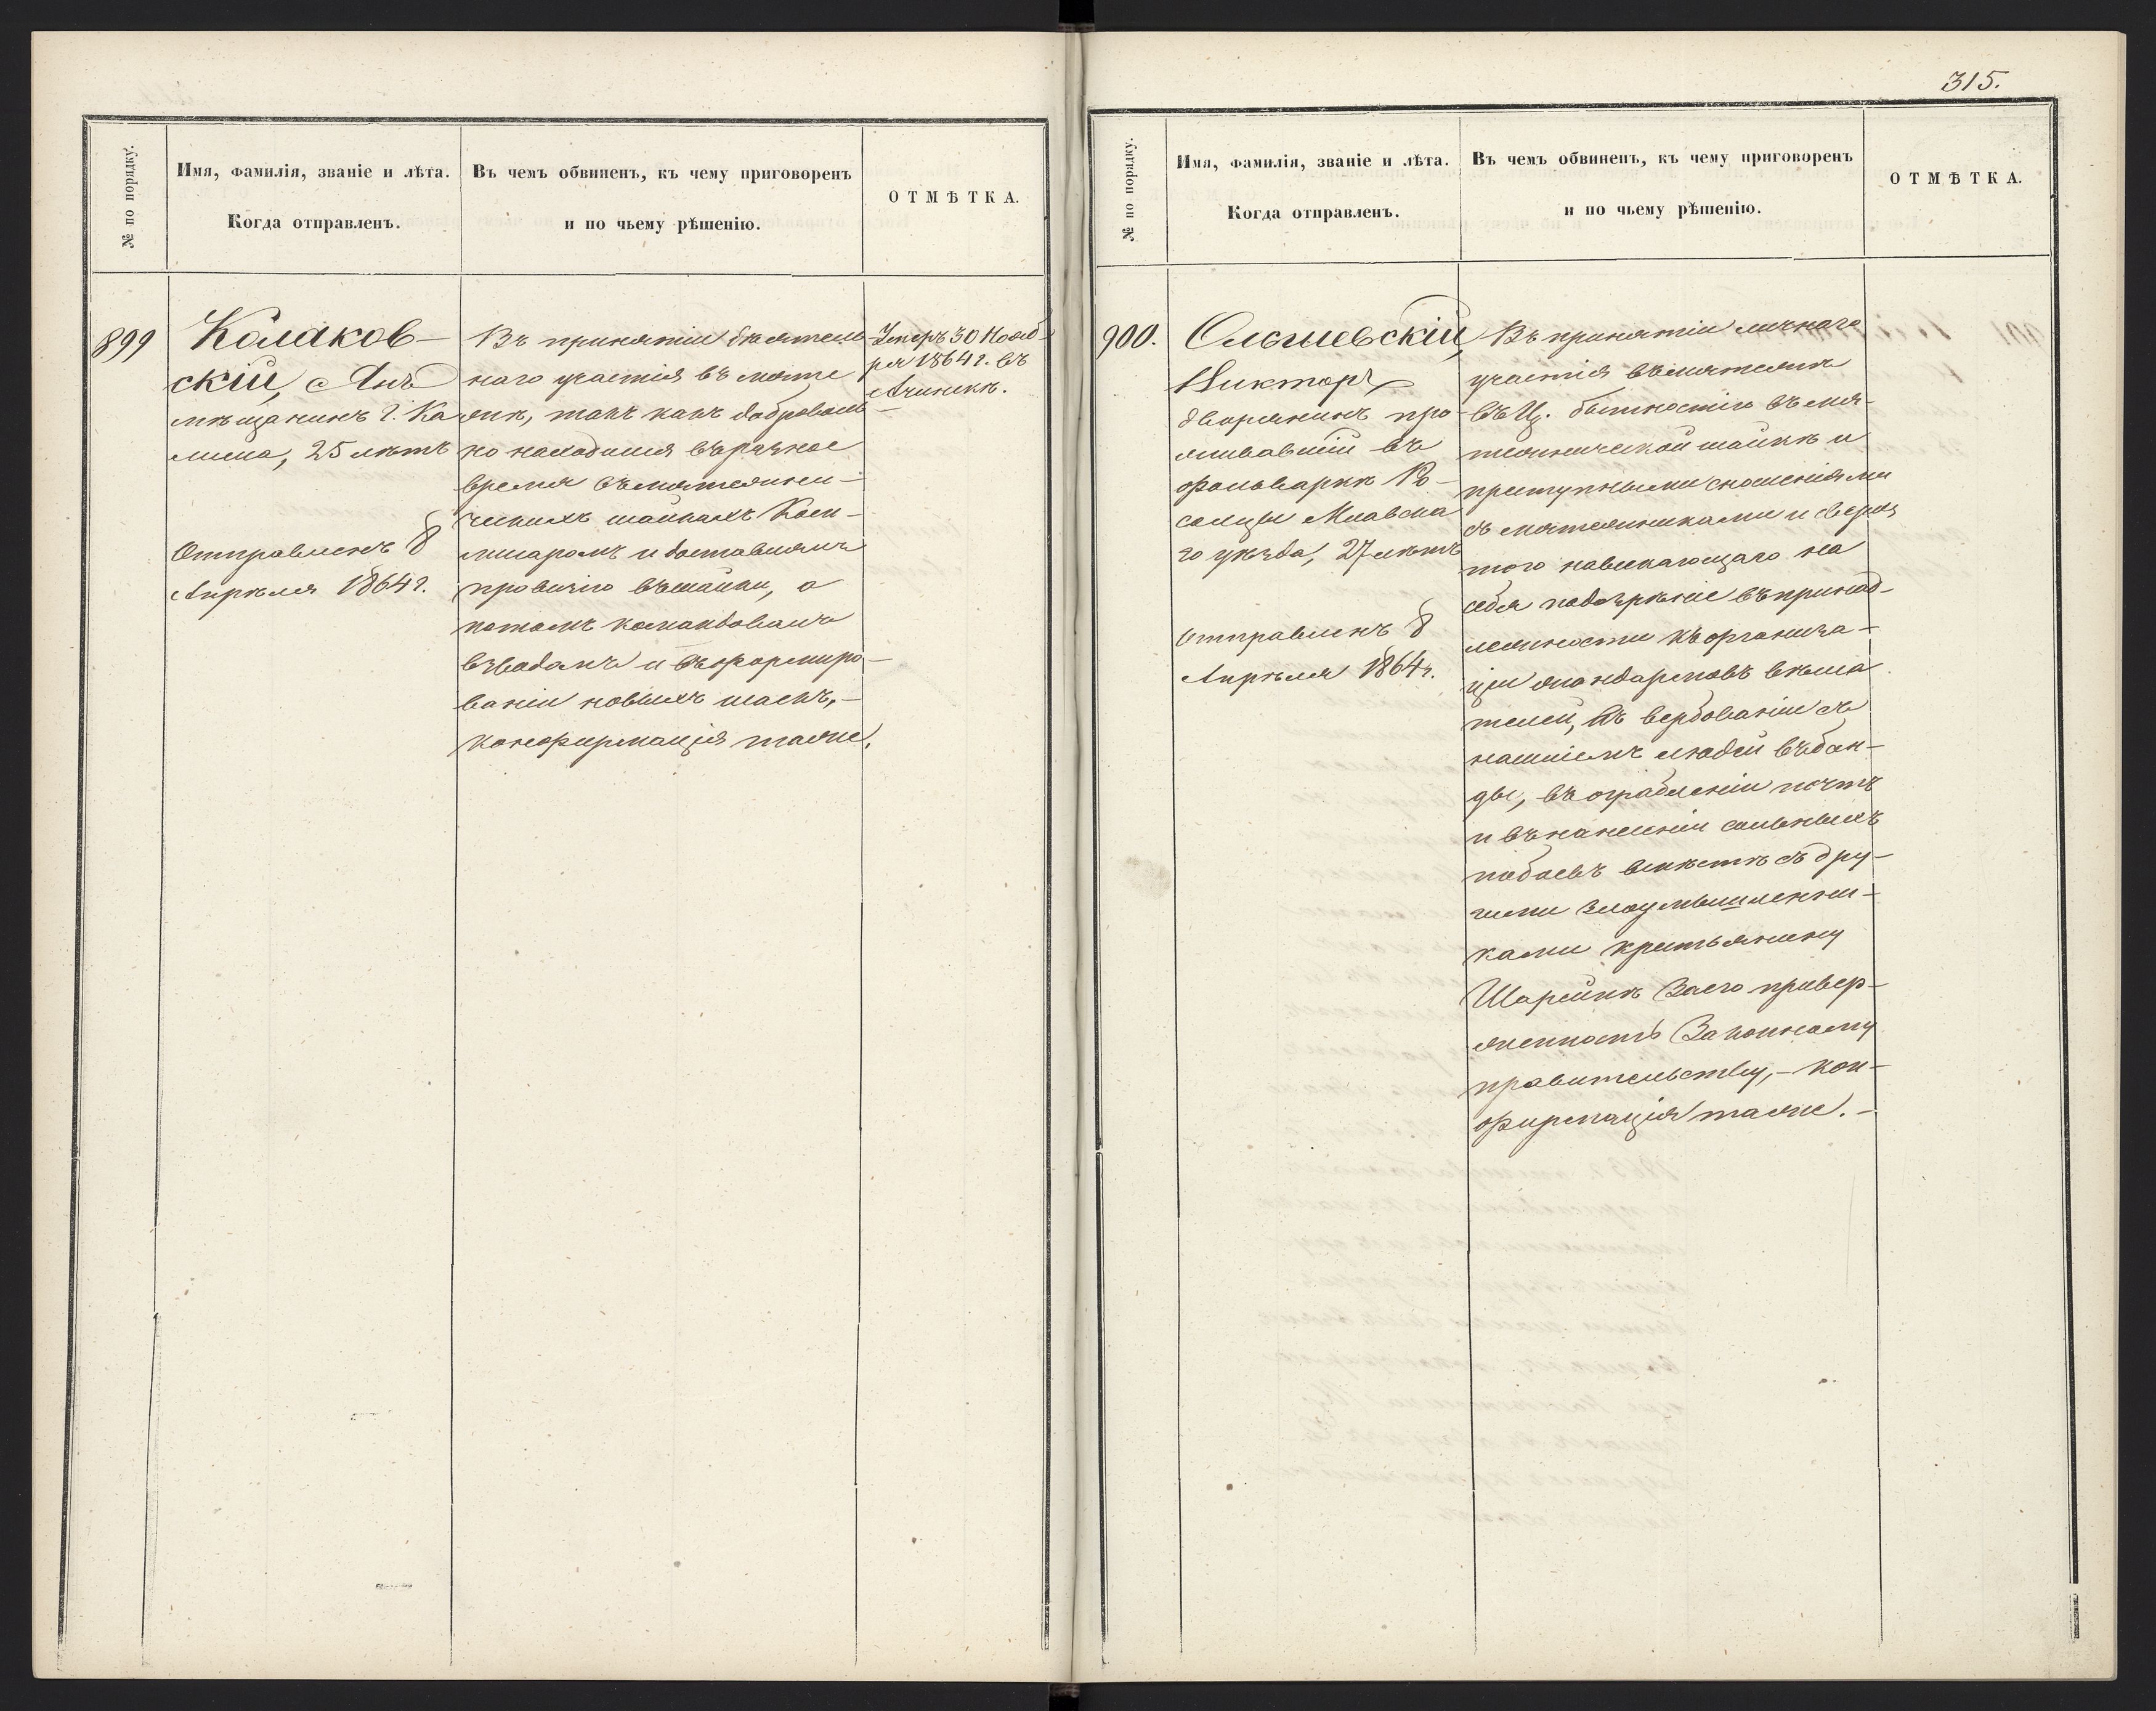 № по порядку.
Имя, фамилія, званіе и лѣта.
Когда отправленъ.
Въ чемъ обвиненъ, къ чему приговоренъ
и по чьему рѣшенію.
ОТМѢТКА.
899
Колаков-
скій, Янъ
мѣщанинъ г. Ка
лиша, 25 лѣтъ
Отправленъ 8
Апрѣля 1864 г.
Въ принятіи дѣятель
наго участія въ мяте
жѣ, такъ какъ доброволь-
но находился въ разное
время въ мятежни-
ческихъ шайкахъ Ком-
мисаромъ и доставлялъ
провизію въ шайки, а
потомъ командовалъ
взводомъ и въ формиро-
ваніи новыхъ шаекъ,-
конфирмація таже.
Умеръ 30 Нояб-
ря 1864 г. въ
Ачинскѣ.
315.
№ по порядку.
Имя, фамилія, званіе и лѣта.
Когда отправленъ.
Въ чемъ обвиненъ, къ чему приговоренъ
и по чьему рѣшенію.
ОТМѢТКА.
900.
Ольшевскій,
Викторъ
дворянинъ про-
живавшій въ
фольваркѣ
Млавска
го уѣзда, 27 лѣтъ
Отправленъ 8
Апрѣля 1864 г.
Въ принятіи личнаго
участія въ мятежѣ
въ Ц. бытностію въ мя-
тежнической шайкѣ и
преступными сношеніями
съ мятежниками и сверхъ
того навлекающаго на
себя подозрѣніе въ принад-
лежности къ организа-
ціи жандармовъ вѣша
телей, въ вербованіи съ
насиліемъ людей въ бан-
ды, въ ограбленіи почтъ
и въ нанесеніи сильныхъ
побоевъ вмѣстѣ съ дру-
гими злоумышленни-
ками крестьянину
Шарейкѣ за его привер-
женность Законному
правительству,- кон-
фирмація таже.-